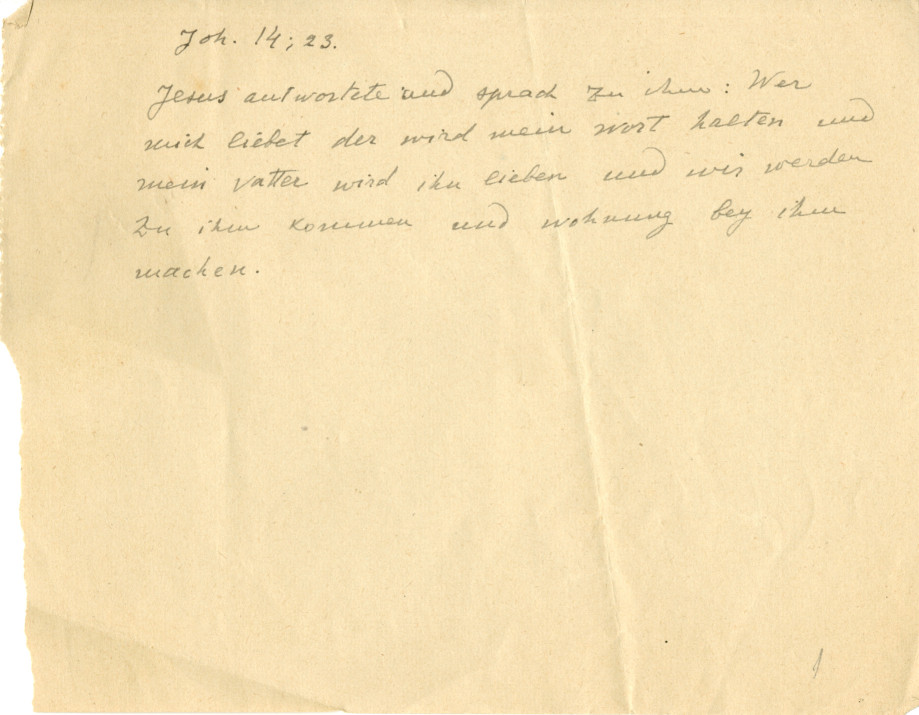 Joh. 14; 23.
Jesus antwortete und sprach zu ihm: Wer
mich liebet der wird mein wort halten und
mein vatter wird ihn lieben und wir werden
Zu ihm kommen und wohnung bey ihm
machen.